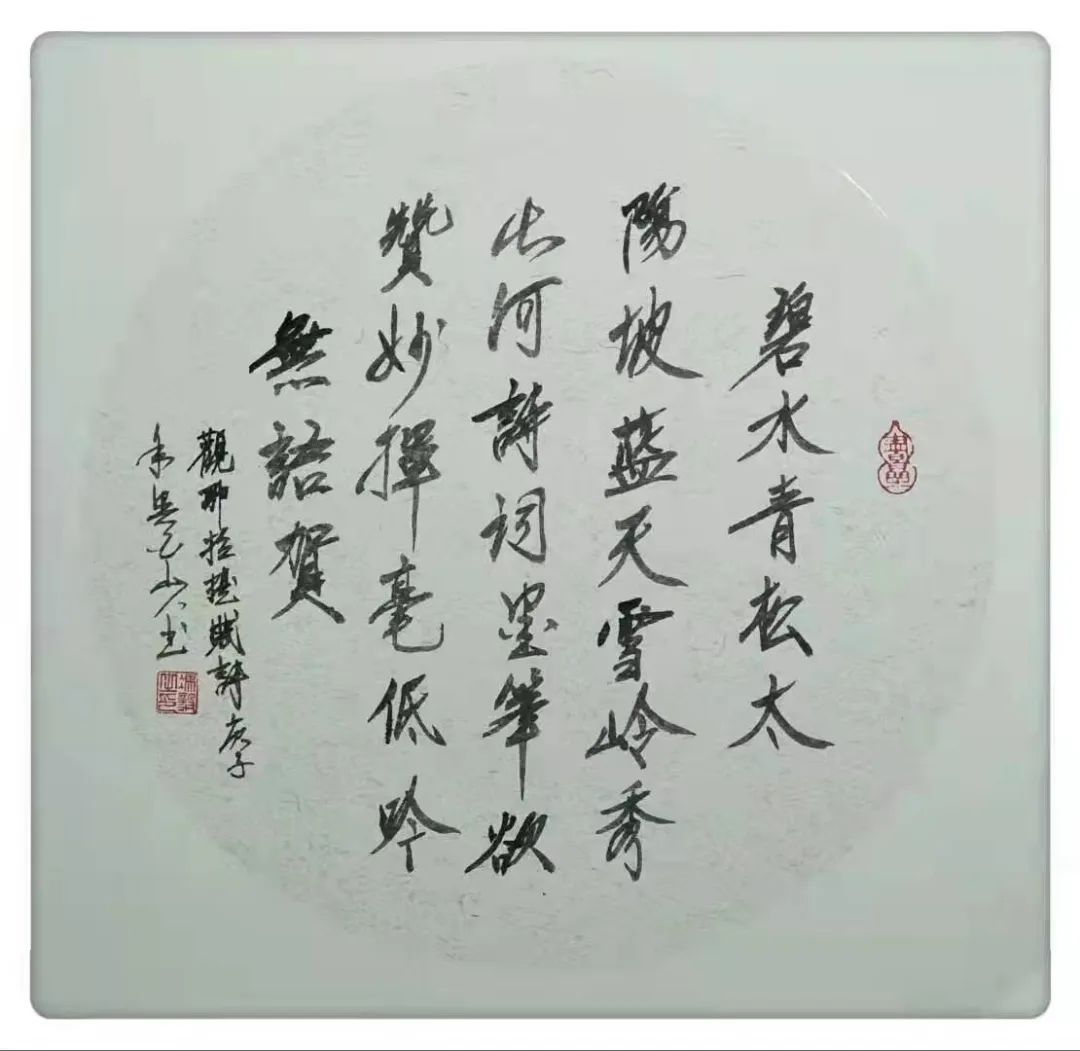 碧水青松太
陽坡藍天雪岭秀
山河詩词墨筆欲
贊妙揮毫低吟
無語賀
觀那拉提賦詩庚子
冬吴
山人书